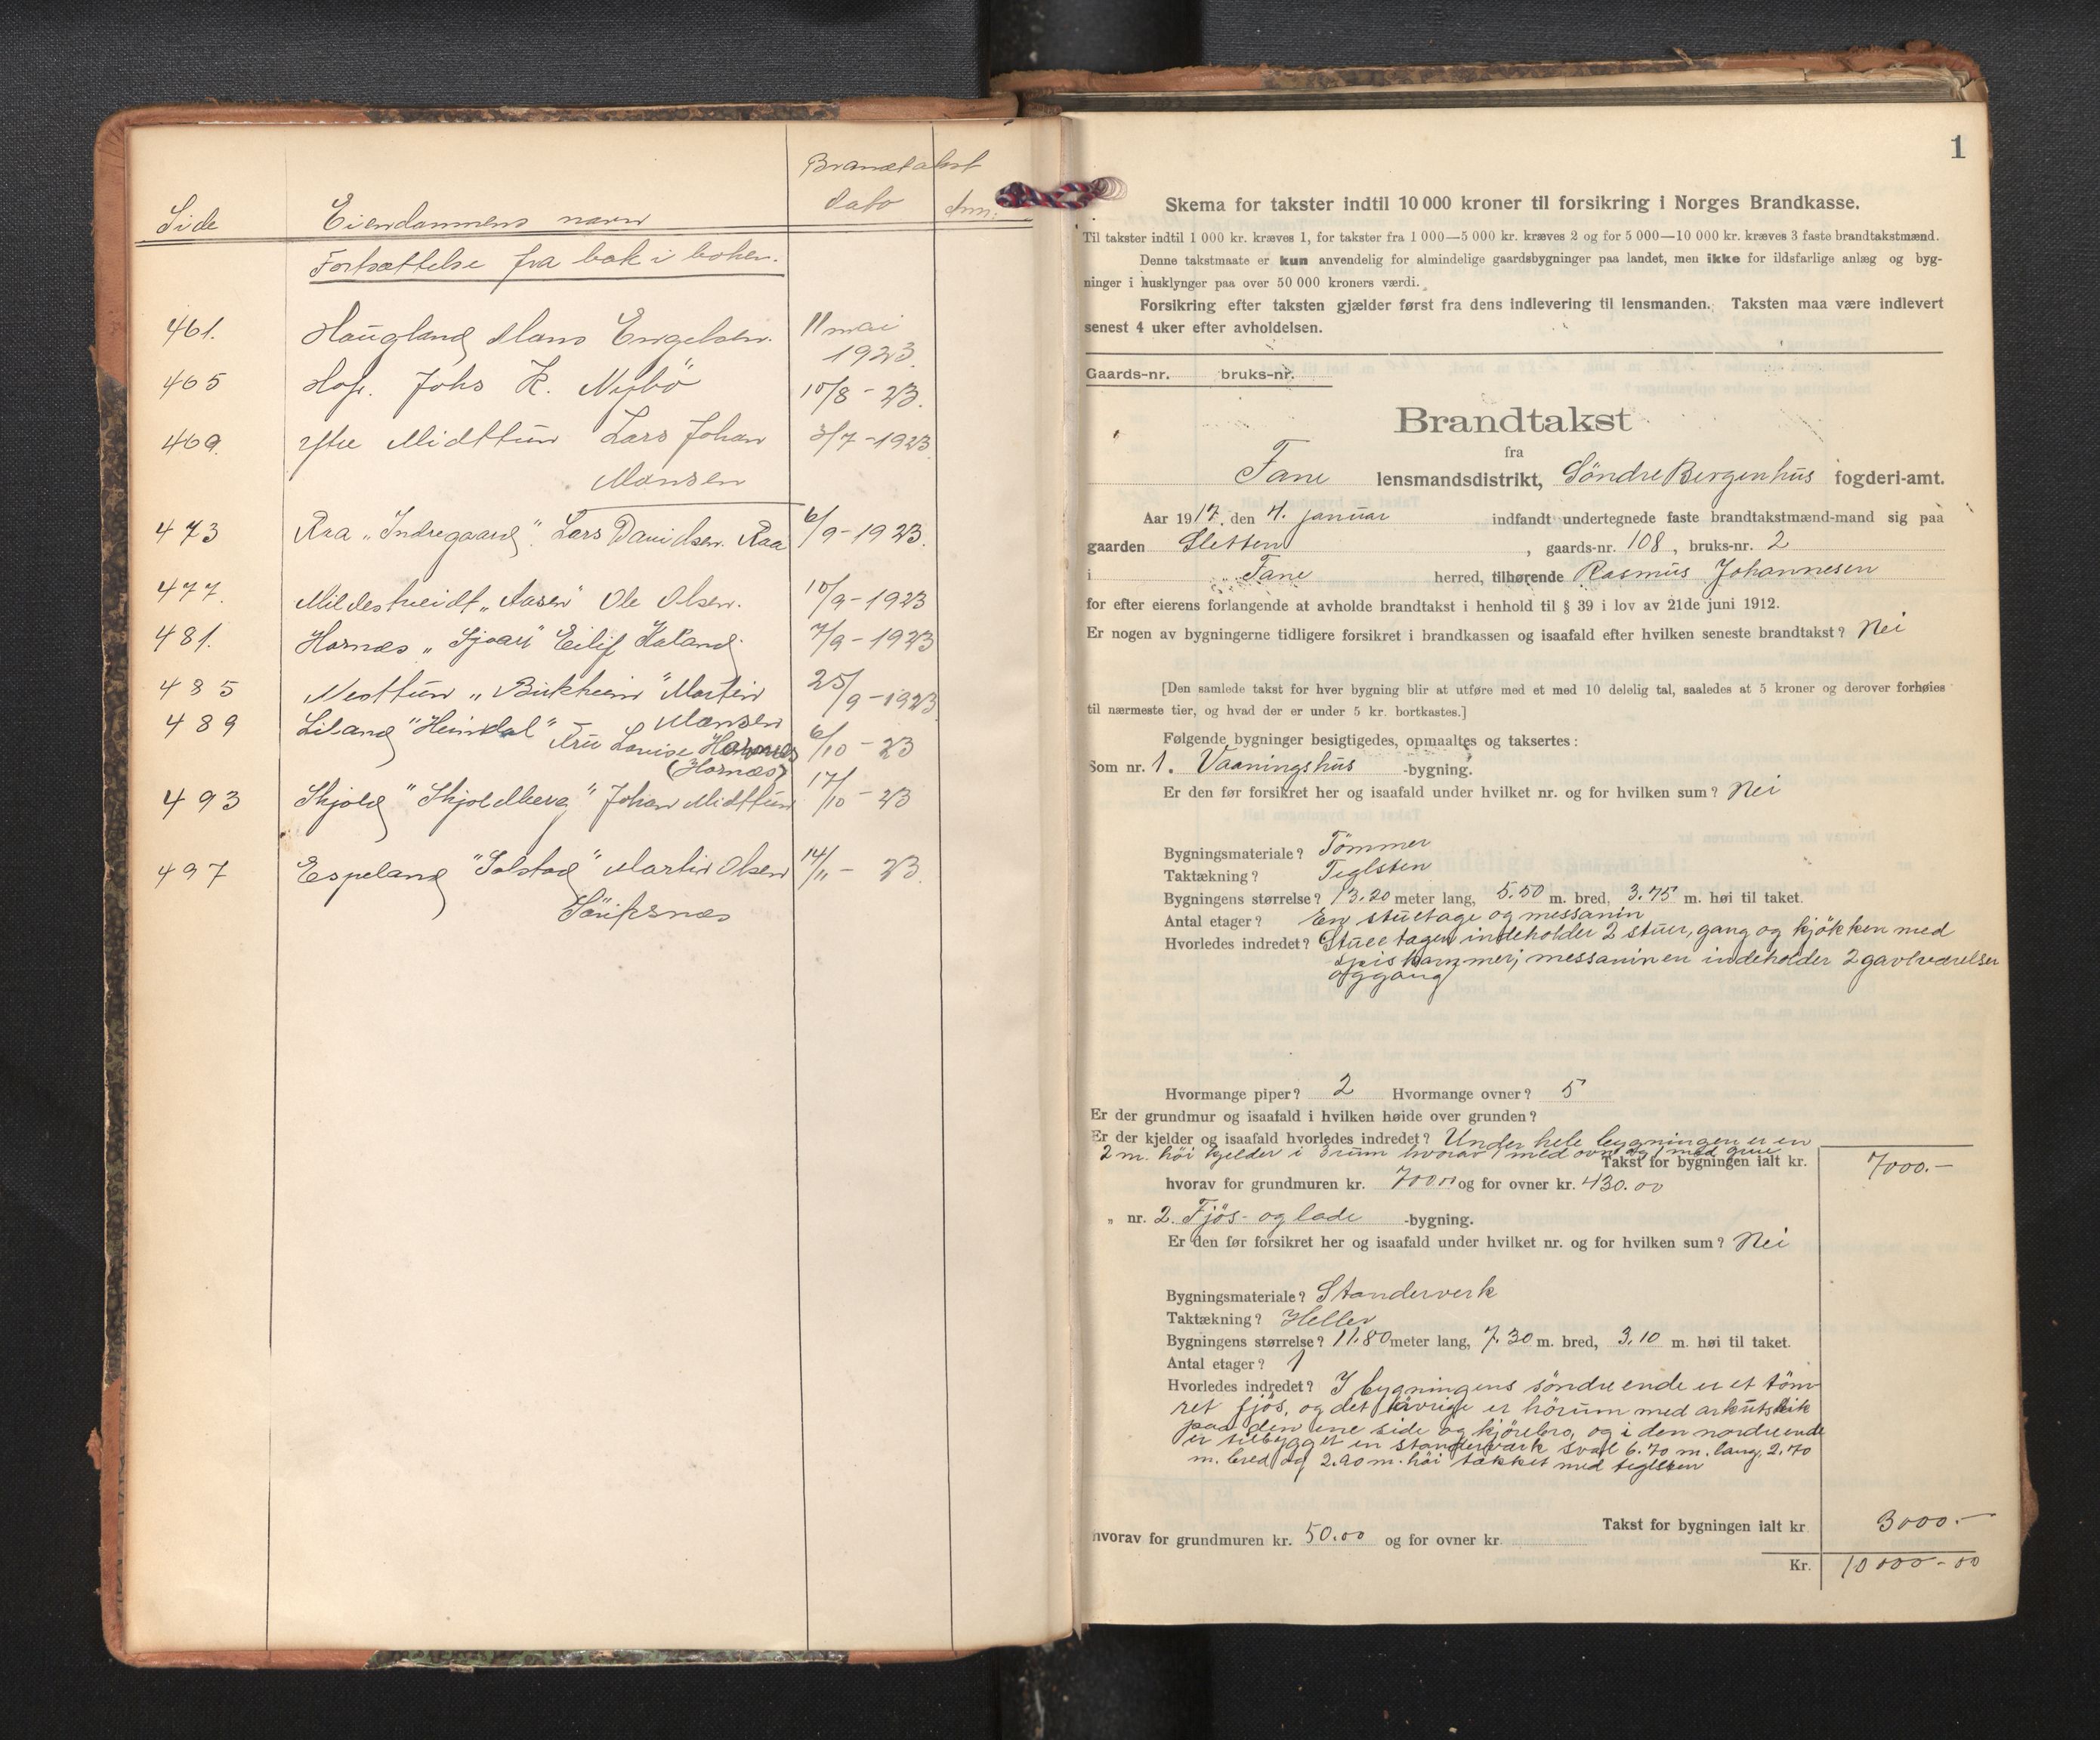 Side
Eiendommens navn
Brandtakst
dato
Anm.
Fortsættelse fra bak i boken.
461. Haugland Hans Engelsen. 11 mai 1923
465 Hop. Johs K. Nybö 10/8 - 23.
469. ytre Midttun Lars Johan 3/7 - 1923.
Monsen
473 Raa „Indregaard". Lars Davidsen Raa 6/9 - 1923.
477. Mildestveidt „Aasen" Ole Olsen. 10/9 - 1923
481. Hornæs „Sjoari" Eilif Kaland 7/9 - 1923
485 Nesttun „Birkheim" Martin 25/9 - 1923
Monsen
489 Liland "Heimdal" Fru Lovise Hornæs 6/10 - 23
(Hornæs)
493 Skjold "Skjoldberg" Johan Midttun 17/10 - 23
497 Espeland "Solstad" Martin Olsen 14/11 - 23.
1
Skema for takster indtil 10 000 kroner til forsikring i Norges Brandkasse.
Til takster indtil 1 000 kr. kræves 1, for takster fra 1 000—5 000 kr. kræves 2 og for 5 000—10 000 kr. kræves 3 faste brandtakstmænd.
Denne takstmaate er kun anvendelig for almindelige gaardsbygninger paa landet, men ikke for ildsfarlige anlæg og byg-
ninger i husklynger paa over 50 000 kroners værdi.
Forsikring efter taksten gjælder først fra dens indlevering til lensmanden. Taksten maa være indlevert
senest 4 uker efter avholdelsen.
Gaards-nr. bruks-nr.
Brandtakst
fra
Fane lensmandsdistrikt, Söndre Bergenhus fogderi-amt.
Aar 1917, den 4. januar indfandt undertegnede faste brandtakstmænd-mand sig paa
gaarden Sletten , gaards-nr. 108, bruks-nr. 2
i Fane herred, tilhørende Rasmus Johannesen
for efter eierens forlangende at avholde brandtakst i henhold til § 39 i lov av 21de juni 1912.
Er nogen av bygningerne tidligere forsikret i brandkassen og isaafald efter hvilken seneste brandtakst? Nei
[Den samlede takst for hver bygning blir at utføre med et med 10 delelig tal, saaledes at 5 kroner og derover forhøies
til nærmeste tier, og hvad der er under 5 kr. bortkastes.]
Følgende bygninger besigtigedes, opmaaltes og taksertes:
Som nr. 1. Vaaningshus -bygning.
Er den før forsikret her og isaafald under hvilket nr. og for hvilken sum? Nei
Bygningsmateriale? Tömmer
Taktækning? Teglsten
Bygningens størrelse? 13.20 meter lang, 5.50 m. bred, 3.75 m. høi til taket.
Antal etager? En stuetage og messanin
Hvorledes indredet? Stuetagen indeholder 2 stuer, gang og kjökken med
spiskammer; messaninen indeholder 2 gavlværelser
og gang
Hvormange piper? 2 Hvormange ovner? 5
Er der grundmur og isaafald i hvilken høide over grunden?
Er der kjelder og isaafald hvorledes indredet? Under hele bygningen er en
2 m. höi kjelder i 3 rum hvorav 1 med ovn og 1 med grue
Takst for bygningen ialt kr. 7000.-
hvorav for grundmuren kr. 700.00 og for ovner kr. 430.00
„ nr. 2. Fjös- og lade -bygning.
Er den før forsikret her og isaafald under hvilket nr. og for hvilken sum? Nei
Bygningsmateriale? Standerverk
Taktækning? Heller
Bygningens størrelse? 11.80 meter lang, 7.30 m. bred, 3.10 m. høi til taket.
Antal etager? 1
Hvorledes indredet? I bygningens söndre ende er et töm-
ret fjös, og det övrige er hörum med
paa den ene side og kjörebro, og i den nordre ende
er tilbygget en standerværk sval 6.70 m. lang, 2.70
m. bred og 2.20 m. höi tækket med teglsten
Takst for bygningen ialt kr 3000.-
hvorav for grundmuren kr. 50.00 og for ovner kr.
Kr. 10 000-00